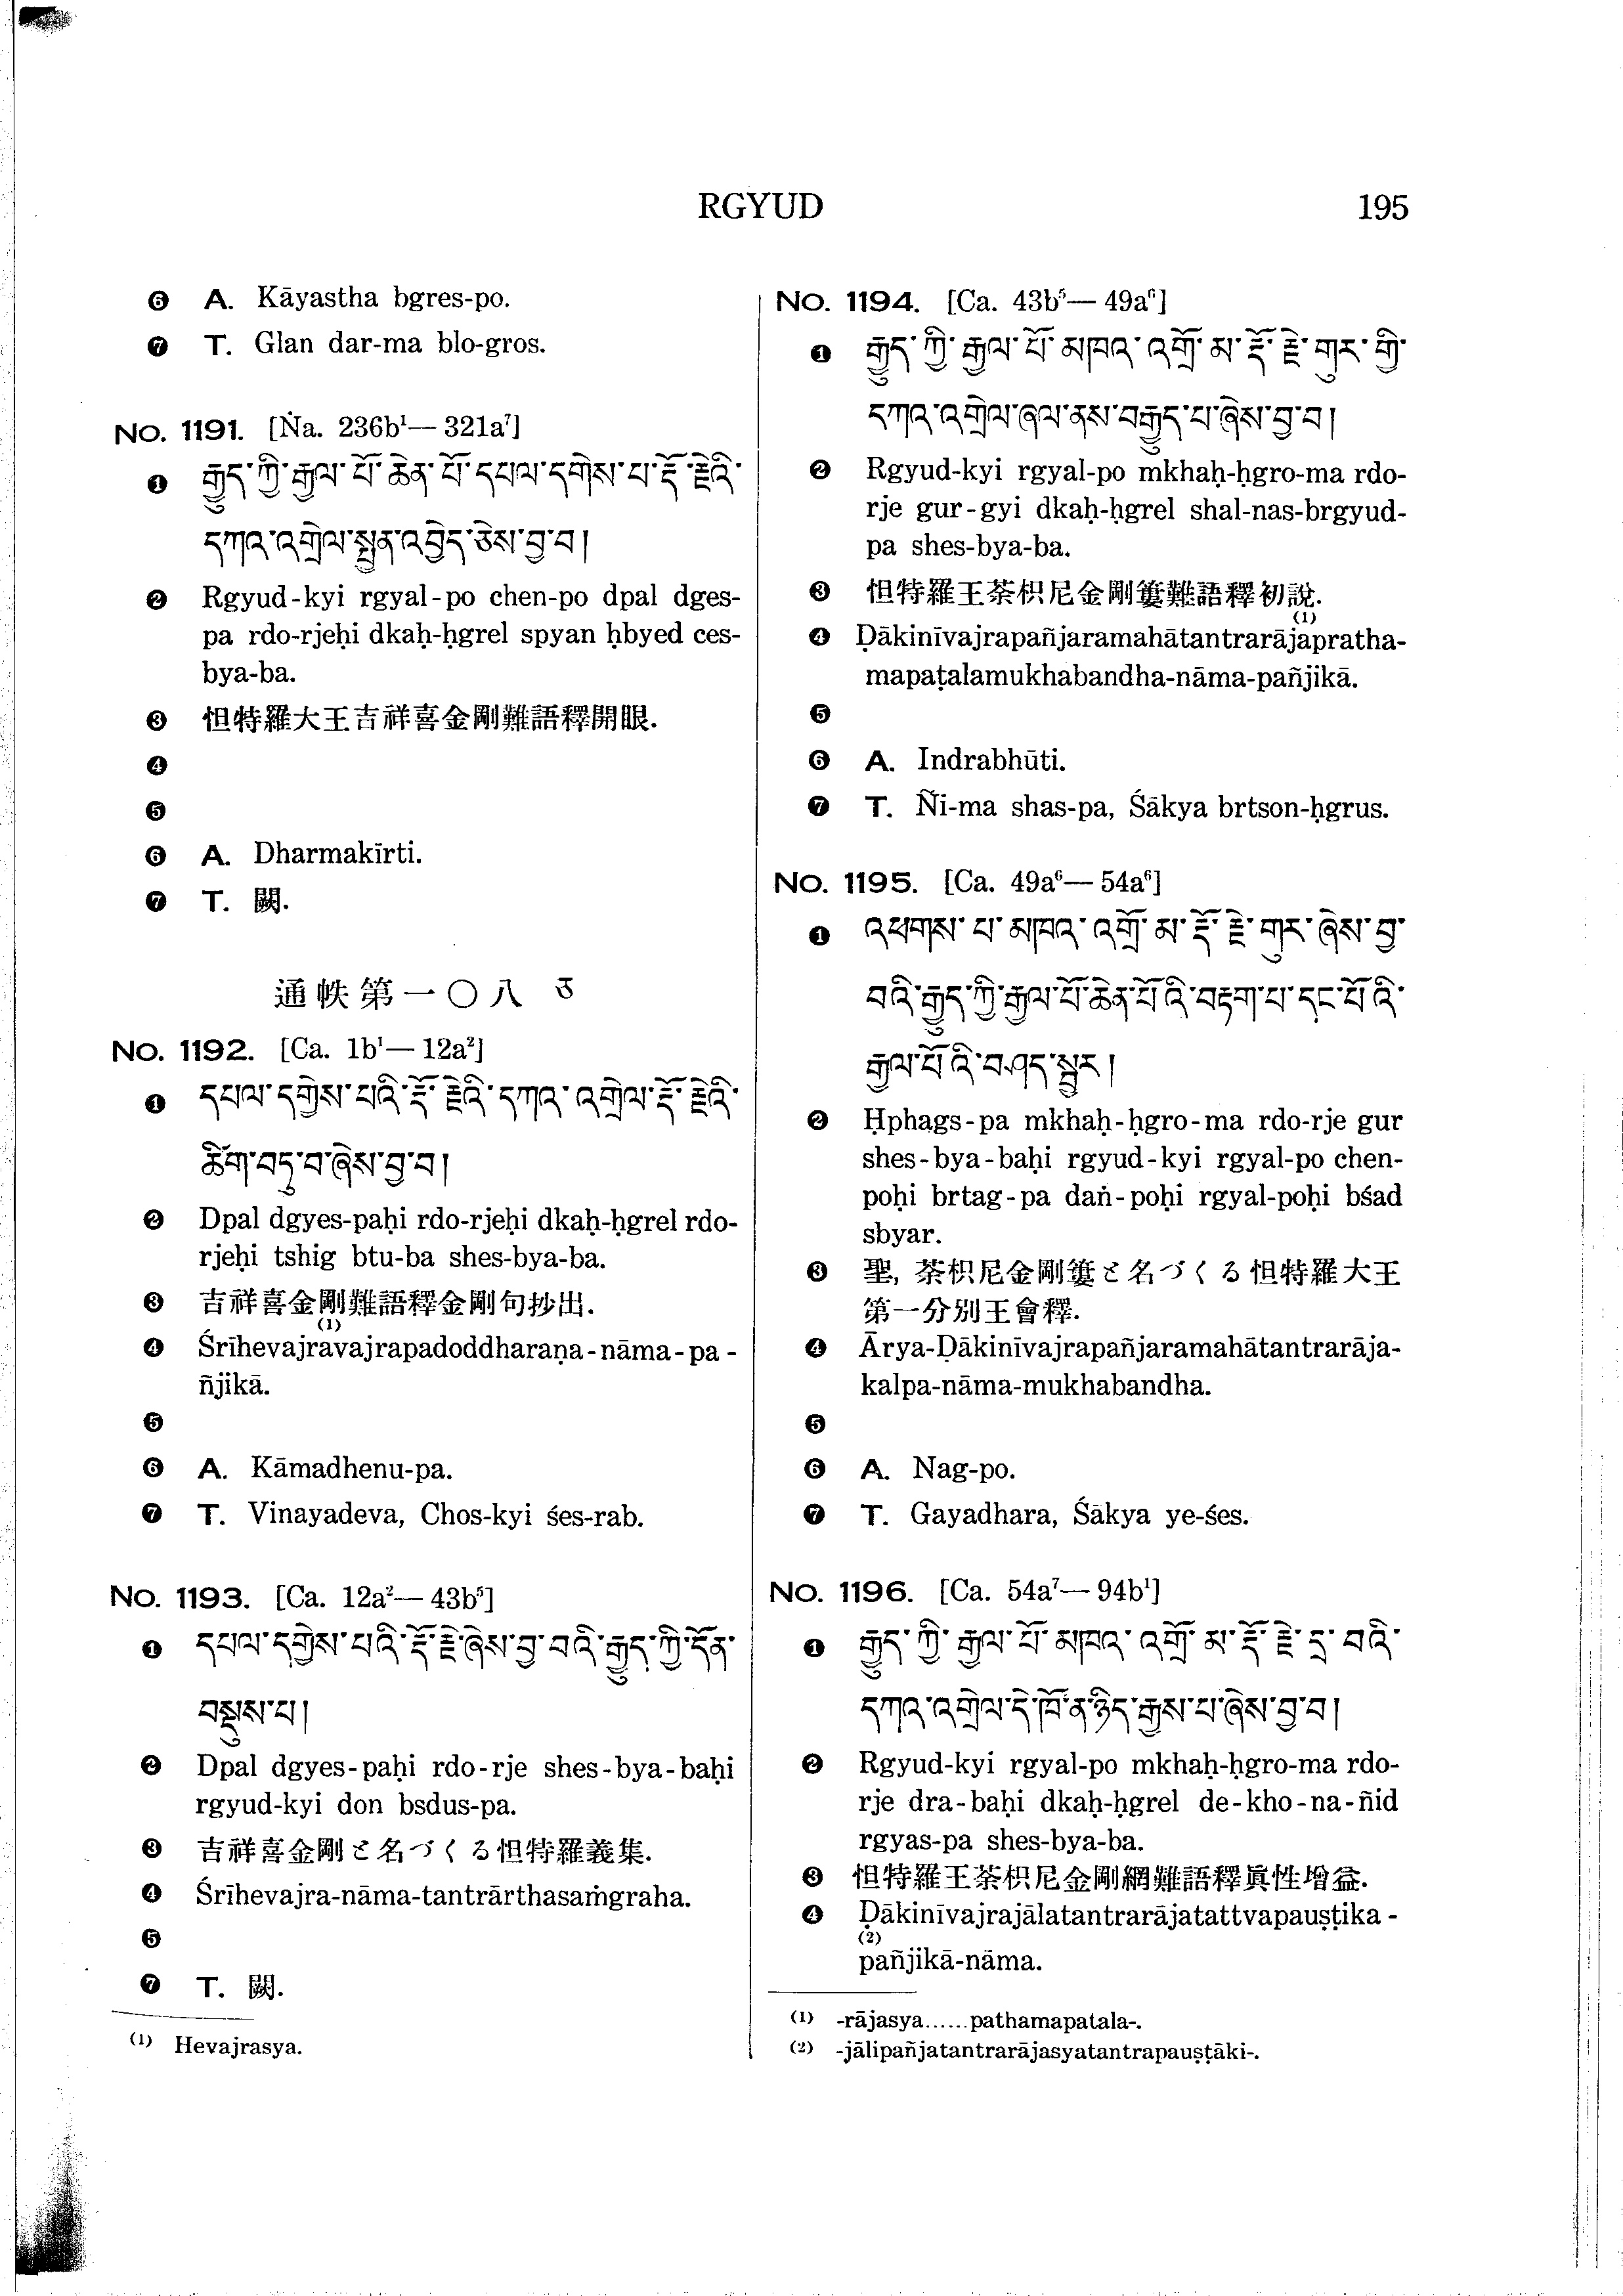 RGYUD
195
❻ A. Kāyastha bgres-po.
❼ T. Glan dar-ma blo-gros.
No. 1191. [Ṅa. 236b¹— 321a⁷]
❶ རྒྱུད་ཀྱི་རྒྱལ་པོ་ཆེན་པོ་དཔལ་དགེས་པ་རྡོ་རྗེའི་
དཀའ་འགྲེལ་སྤྱན་འབྱེད་ཅེས་བྱ་བ།
❷ Rgyud-kyi rgyal-po chen-po dpal dges-
pa rdo-rjeḥi dkaḥ-ḥgrel spyan ḥbyed ces-
bya-ba.
❸ 怛特羅大王吉祥喜金剛難語釋開眼.
❹
❺
❻ A. Dharmakīrti.
❼ T. 闕.
通帙第一〇八 ཅ
No. 1192. [Ca. 1b¹— 12a²]
❶ དཔལ་དགྱེས་པའི་རྡོ་རྗེའི་དཀའ་འགྲེལ་རྡོ་རྗེའི་
ཚིག་བཏུ་བ་ཞེས་བྱ་བ།
❷ Dpal dgyes-paḥi rdo-rjeḥi dkaḥ-ḥgrel rdo-
rjeḥi tshig btu-ba shes-bya-ba.
❸ 吉祥喜金剛難語釋金剛句抄出.
(1)
❹ Śrīhevajravajrapadoddharaṇa-nāma-pa-
ñjikā.
❺
❻ A. Kāmadhenu-pa.
❼ T. Vinayadeva, Chos-kyi śes-rab.
No. 1193. [Ca. 12a²— 43b⁵]
❶ དཔལ་དགྱེས་པའི་རྡོ་རྗེ་ཞེས་བྱ་བའི་རྒྱུད་ཀྱི་དོན་
བསྡུས་པ།
❷ Dpal dgyes-paḥi rdo-rje shes-bya-baḥi
rgyud-kyi don bsdus-pa.
❸ 吉祥喜金剛と名づくる怛特羅義集.
❹ Śrīhevajra-nāma-tantrārthasaṁgraha.
❺
❼ T. 闕.
(1) Hevajrasya.
No. 1194. [Ca. 43b⁵— 49a⁶]
❶ རྒྱུད་ཀྱི་རྒྱལ་པོ་མཁའ་འགྲོ་མ་རྡོ་རྗེ་གུར་གྱི་
དཀའ་འགྲེལ་ཞལ་ནས་བརྒྱུད་པ་ཞེས་བྱ་བ།
❷ Rgyud-kyi rgyal-po mkhaḥ-ḥgro-ma rdo-
rje gur-gyi dkaḥ-ḥgrel shal-nas-brgyud-
pa shes-bya-ba.
❸ 怛特羅王荼枳尼金剛簍難語釋初說.
(1)
❹ Ḍākinīvajrapañjaramahātantrarājapratha-
mapaṭalamukhabandha-nāma-pañjikā.
❺
❻ A. Indrabhūti.
❼ T. Ñi-ma shas-pa, Śākya brtson-ḥgrus.
No. 1195. [Ca. 49a⁶— 54a⁶]
❶ འཕགས་པ་མཁའ་འགྲོ་མ་རྡོ་རྗེ་གུར་ཞེས་བྱ་
བའི་རྒྱུད་ཀྱི་རྒྱལ་པོ་ཆེན་པོའི་བརྟག་པ་དང་པོའི་
རྒྱལ་པོའི་བཤད་སྦྱར།
❷ Ḥphags-pa mkhaḥ-ḥgro-ma rdo-rje gur
shes-bya-baḥi rgyud-kyi rgyal-po chen-
poḥi brtag-pa daṅ-poḥi rgyal-poḥi bśad
sbyar.
❸ 聖, 荼枳尼金剛簍と名づくる怛特羅大王
第一分別王會釋.
❹ Ārya-Ḍākinīvajrapañjaramahātantrarāja-
kalpa-nāma-mukhabandha.
❺
❻ A. Nag-po.
❼ T. Gayadhara, Śākya ye-śes.
No. 1196. [Ca. 54a⁷— 94b¹]
❶ རྒྱུད་ཀྱི་རྒྱལ་པོ་མཁའ་འགྲོ་མ་རྡོ་རྗེ་དྲ་བའི་
དཀའ་འགྲེལ་དེ་ཁོ་ན་ཉིད་རྒྱས་པ་ཞེས་བྱ་བ།
❷ Rgyud-kyi rgyal-po mkhaḥ-ḥgro-ma rdo-
rje dra-baḥi dkaḥ-ḥgrel de-kho-na-ñid
rgyas-pa shes-bya-ba.
❸ 怛特羅王荼枳尼金剛網難語釋眞性增益.
❹ Ḍākinīvajrajālatantrarājatattvapauṣṭika-
(2)
pañjikā-nāma.
(1) -rājasya......pathamapatala-.
(2) -jālipañjatantrarājasyatantrapauṣṭāki-.